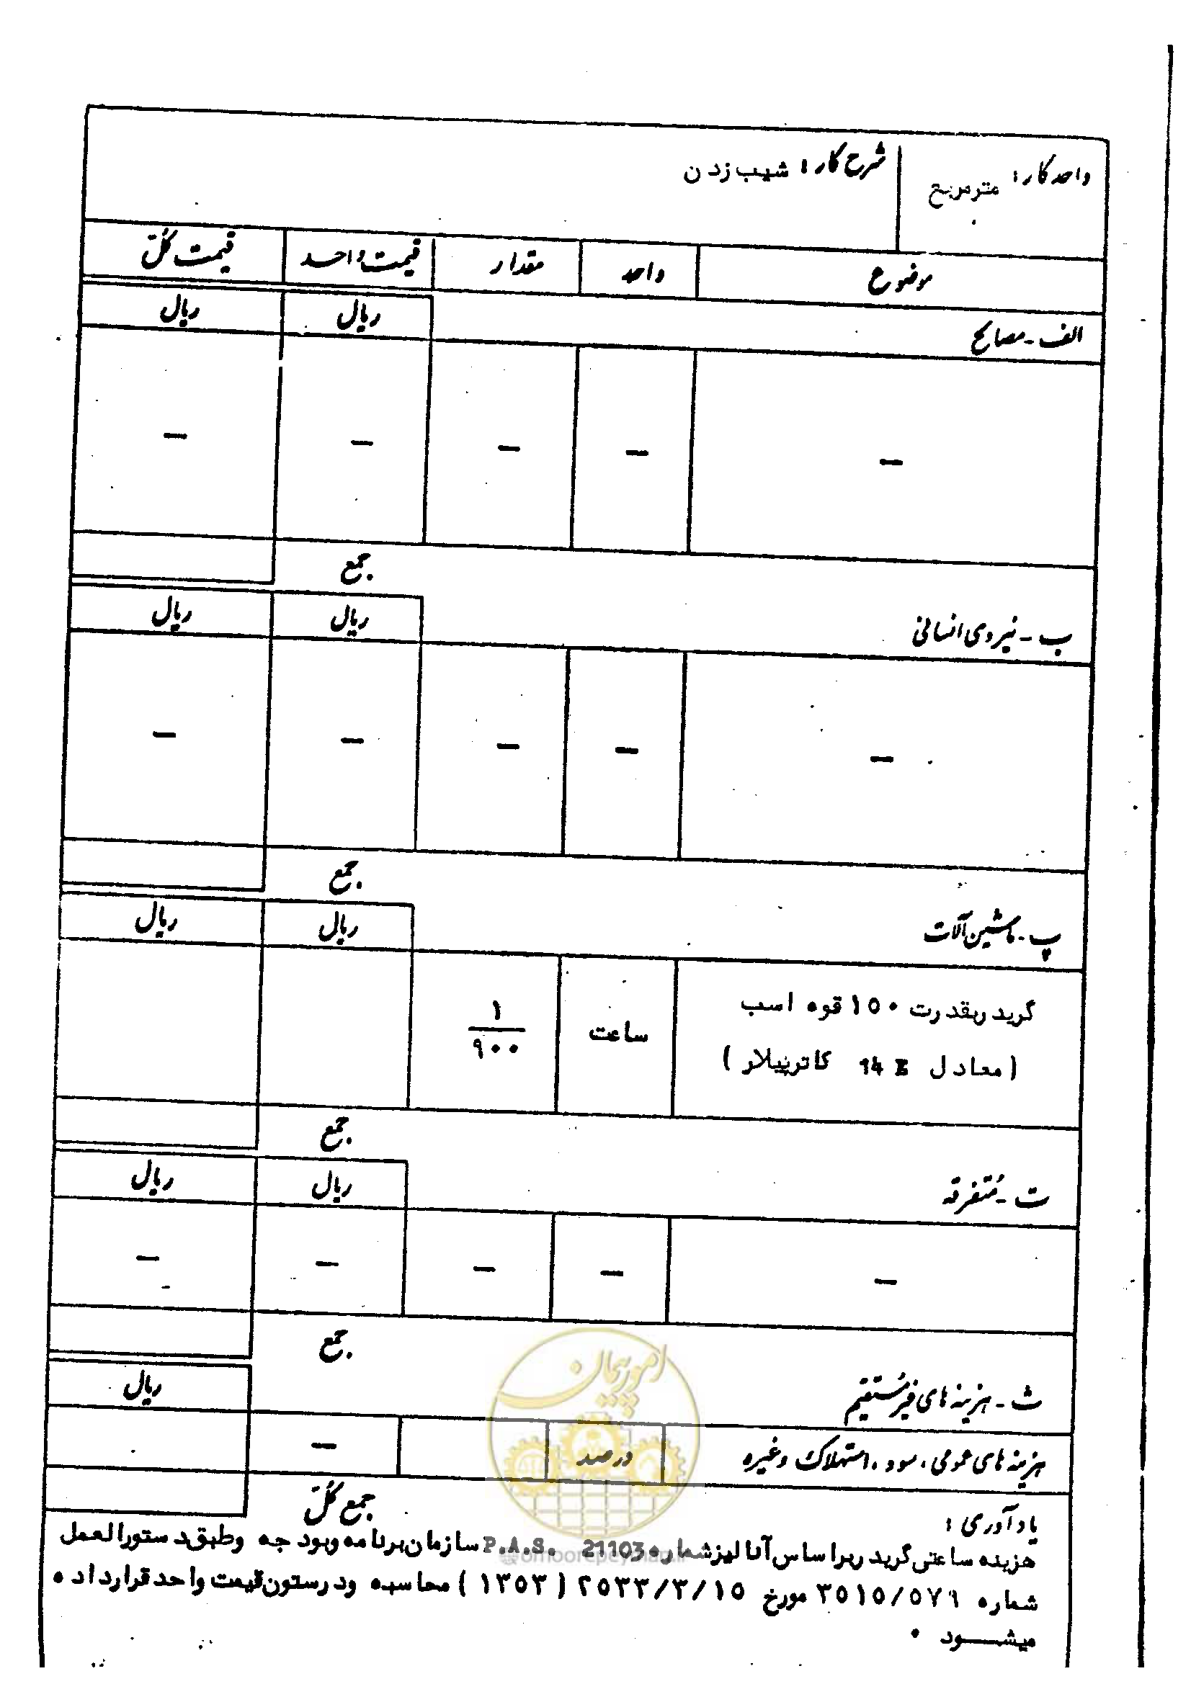 واحد کار: مترمربع
شرح کار: شیب زدن
موضوع واحد مقدار قیمت واحد قیمت کل
الف - مصالح ریال ریال
— — — — —
جمع
ب - نیروی انسانی ریال ریال
— — — — —
جمع
پ - ماشین آلات ریال ریال
گریدر بقدرت ۱۵۰ قوه اسب ساعت ۱/۹۰۰
(معادل 14 E کاترپیلار)
جمع
ت - متفرقه ریال ریال
— — — — —
جمع
ث - هزینه های غیر مستقیم ریال
هزینه های عمومی، سود، استهلاک وغیره درصد —
جمع کل
یادآوری:
هزینه ساعتی گریدر براساس آنالیز شماره P.A.S. 21103 سازمان برنامه وبودجه وطبق دستورالعمل
شماره ۳۵۱۵/۵۷۹ مورخ ۲۵۳۳/۳/۱۵ (۱۳۵۳) محاسبه ودرستون قیمت واحد قرارداده
میشود .
امور پیمان
@omoorepeyman.ir